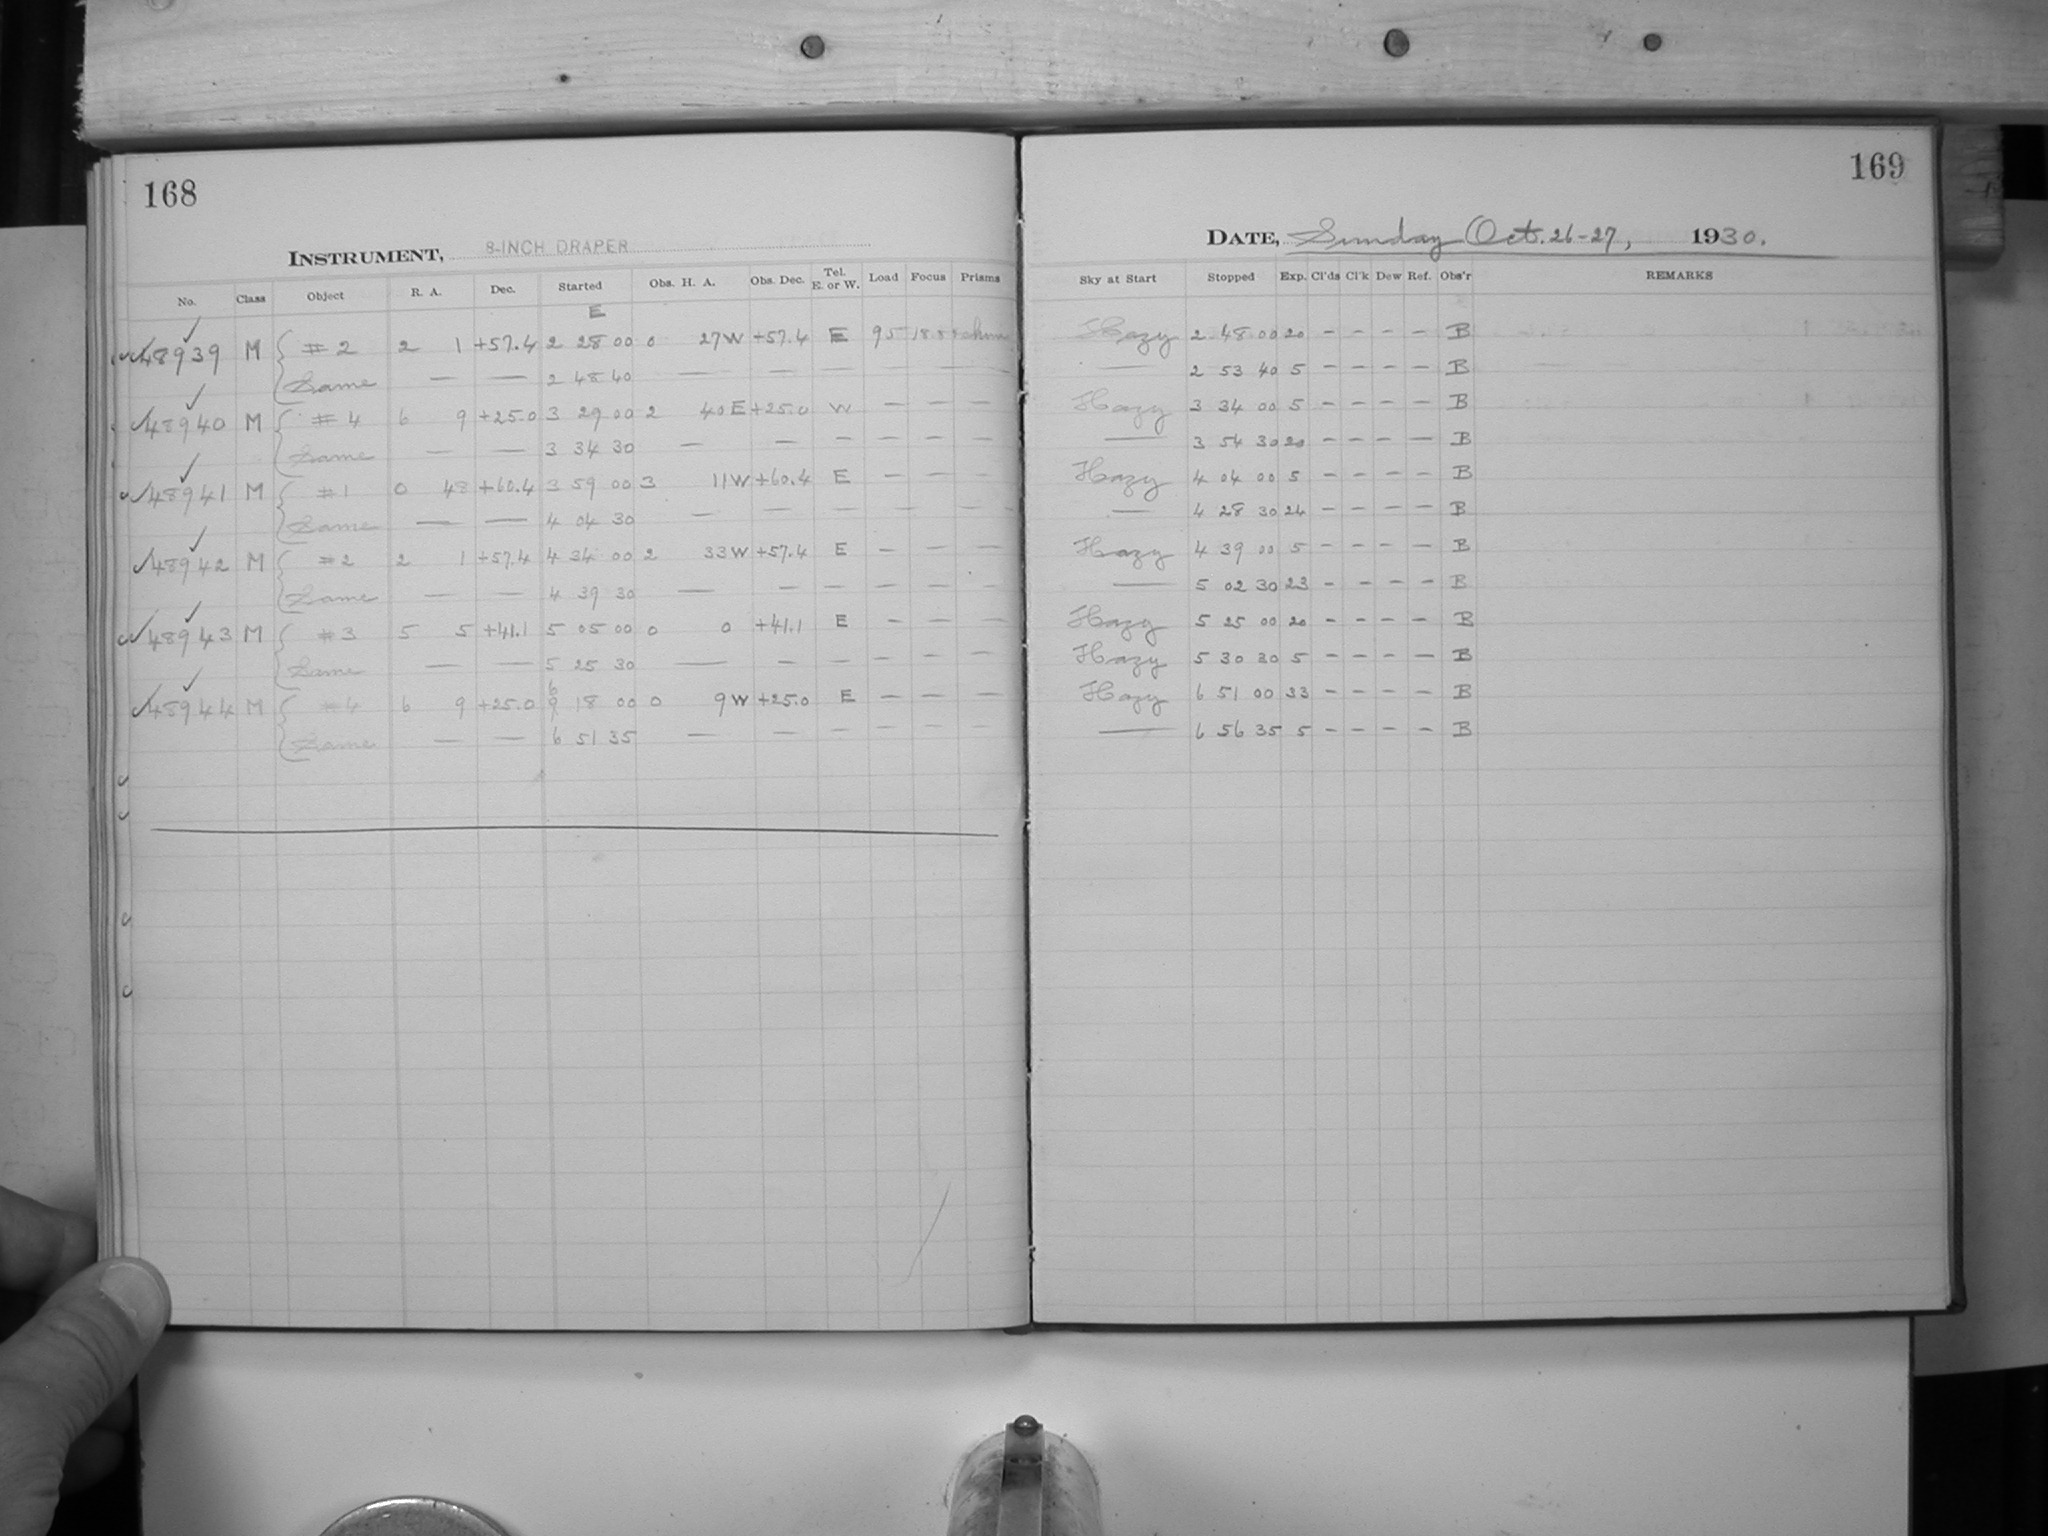 168
INSTRUMENT, 8-INCH DRAPER
No. Class Object R. A. Dec. Started Obs. H. A. Obs. Dec. Tel. E. or W. Load Focus Prisms
E
48939 M #2 2 1 +57.4 2 28 00 0 27 W +57.4 E 95
Same — — 2 48 40 — — — — — —
48940 M #4 6 9 +25.0 3 29 00 2 40 E +25.0 W — — —
Same — — 3 34 30 — — — — — —
48941 M #1 0 48 +60.4 3 59 00 3 11 W +60.4 E — — —
Same — — 4 04 30 — — — — — —
48942 M #2 2 1 +57.4 4 34 00 2 33 W +57.4 E — — —
Same — — 4 39 30 — — — — — —
48943 M #3 5 5 +41.1 5 05 00 0 0 +41.1 E — — —
Same — — 5 25 30 — — — — — —
48944 M #4 6 9 +25.0 6 18 00 0 9 W +25.0 E — — —
Same — — 6 51 35 — — — — — —
169
DATE, Sunday Oct. 26-27, 1930.
Sky at Start Stopped Exp. Cl'ds Cl'k Dew Ref. Obs'r REMARKS
Hazy 2 48 00 20 - - - - B
— 2 53 40 5 - - - - B
Hazy 3 34 00 5 - - - - B
— 3 54 30 20 - - - - B
Hazy 4 04 00 5 - - - - B
— 4 28 30 24 - - - - B
Hazy 4 39 00 5 - - - - B
— 5 02 30 23 - - - - B
Hazy 5 25 00 20 - - - - B
Hazy 5 30 30 5 - - - - B
Hazy 6 51 00 33 - - - - B
— 6 56 35 5 - - - - B